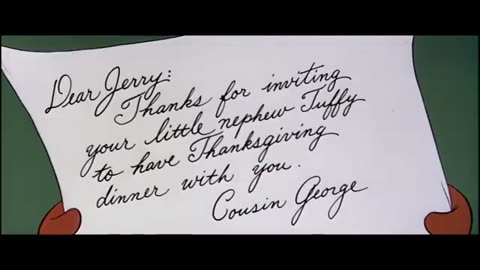 Dear Jerry:
Thanks for inviting
your little nephew Tuffy
to have Thanksgiving
dinner with you.
Cousin George